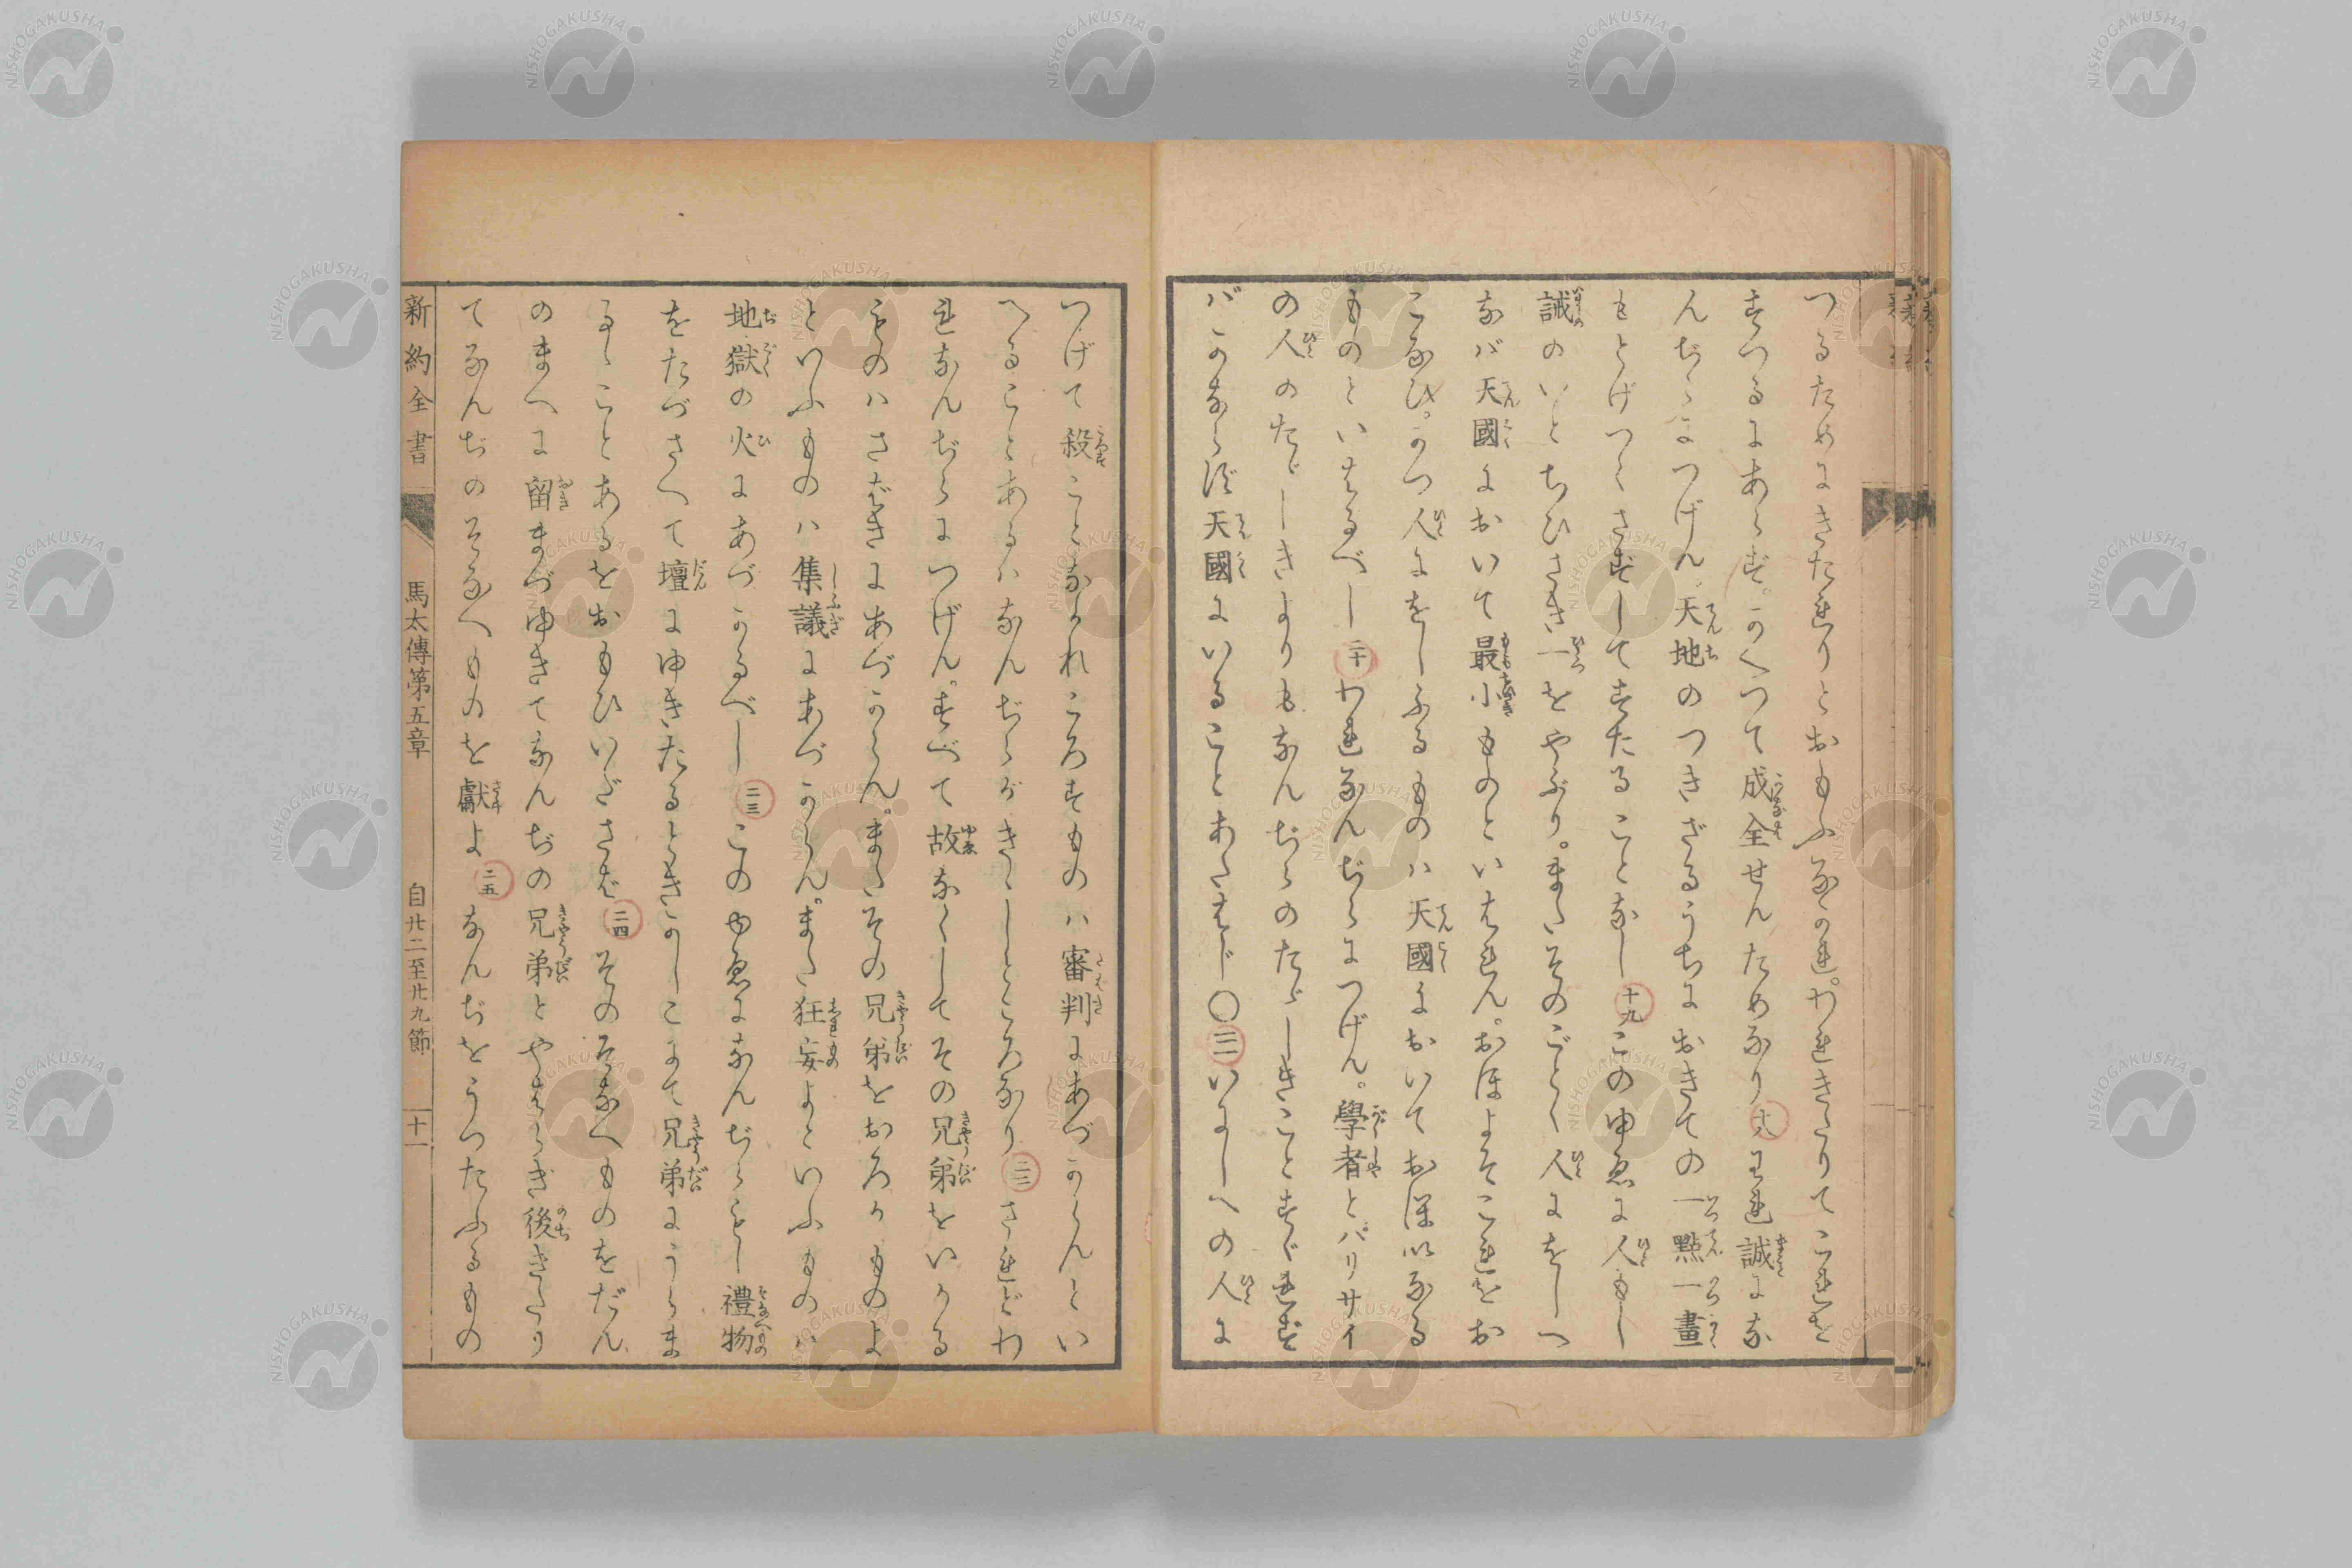 つるためにきたれりとおもふなかれ。われきたりてこれを
すつるにあらず。かへつて成全せんためなり 十八 われ誠にな
んぢらにつげん、天地のつきざるうちにおきての一點一畫
もとげつくさずしてすたることなし 十九 このゆゑに人もし
誡のいとちひさき一をやぶり。またそのごとく人にをしへ
なバ天國において最小ものといはれん。おほよそこれをお
こなひ。かつ人にをしふるものハ天國においておほいなる
ものといはるべし 二十 われなんぢらにつげん。學者とパリサイ
の人のたゞしきよりもなんぢらのたゞしきことすぐれず
バかならず天國にいることあたはじ〇 二一 いにしへの人に
つげて殺ことなかれころすものハ審判にあづからんとい
へることあるハなんぢらがきゝしところなり 二二 されどわ
れなんぢらにつげん。すべて故なくしてその兄弟をいかる
ものハさばきにあづからん。またその兄弟をおろかものよ
といふものハ集議にあづからん。また狂妄よといふものハ
地獄の火にあづかるべし 二三 このゆゑになんぢらもし禮物
をたづさへて壇にゆきたるときかしこにて兄弟にうらま
るゝことあるをおもひいださば 二四 そのそなへものをだん
のまへに留まづゆきてなんぢの兄弟とやはらぎ後きたり
てなんぢのそなへものを獻よ 二五 なんぢをうつたふるもの
新約全書 馬太傳第五章 自廿二至廿九節 十一